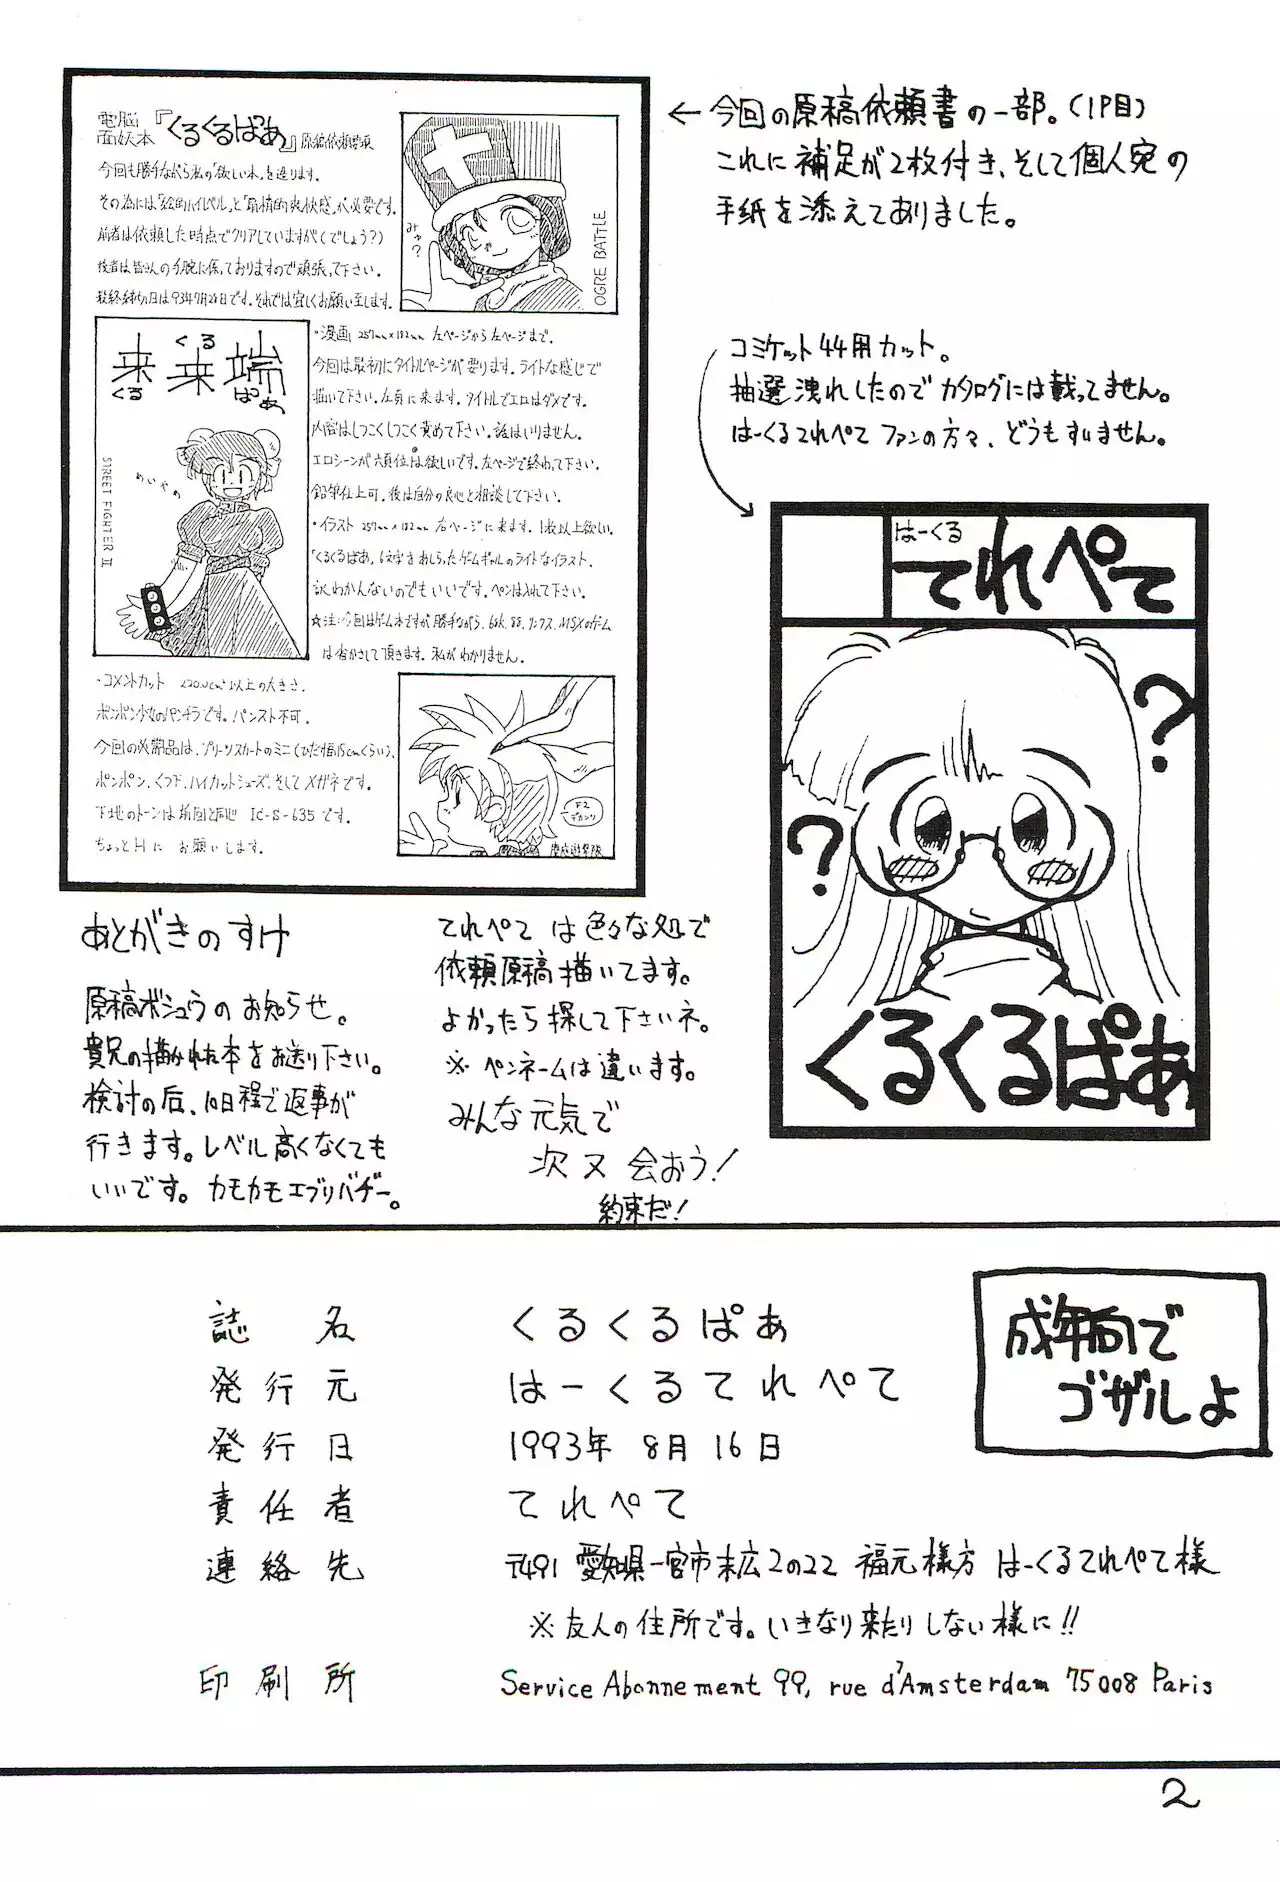 電脳
面妖本『くるくるぱあ』原稿依頼要項
今回も勝手ながら私の「欲しい本」を造ります。
その為には「絵的ハイレベル」と「扇情的爽快感」が必要です。
前者は依頼した時点でクリアしていますが(でしょう?)
後者は皆さんの手腕に係っておりますので頑張って下さい。
最終締切日は93年7月26日です。それでは宜しくお願い至します。
みゅ?
OGRE BATTLE
くる
来来端
くる ぱあ
めいやあ
STREET FIGHTER II
・漫画 257mm×182mm 左ページから左ページまで。
今回は最初にタイトルページが要ります。ライトな感じで
描いて下さい。左頁に来ます。タイトルでエロはダメです。
内容はしつこくしつこく責めて下さい。話はいりません。
エロシーンが六頁位は欲しいです。左ページで終わって下さい。
鉛筆仕上可。後は自分の良心と相談して下さい。
・イラスト 257mm×182mm 右ページに来ます。1枚以上欲しい。
「くるくるぱあ」1文字をあしらったゲームギャルのライトなイラスト。
訳わかんないのでもいいです。ペンは入れて下さい。
☆注:今回はゲーム本ですが勝手ながら、68K、88、リンクス、MSXのゲーム
は省かさして頂きます。私がわかりません。
・コメントカット 220.0cm²以上の大きさ。
ポンポン少女のパンチラです。パンスト不可。
今回の必需品は、プリーツスカートのミニ(ひだ幅15cmくらい)、
ポンポン、くつ下、ハイカットシューズ、そしてメガネです。
下地のトーンは前回と同じ IC-S-635です。
ちょっとHに お願いします。
←今回の原稿依頼書の一部。(1P目)
これに補足が2枚付き、そして個人宛の
手紙を添えてありました。
コミケット44用カット。
抽選洩れしたのでカタログには載ってません。
はーくるてれぺて ファンの方々、どうもすいません。
はーくる
てれぺて
?
?
くるくるぱあ
あとがきのすけ
原稿ボシュウのお知らせ。
貴兄の描かれた本をお送り下さい。
検討の后、10日程で返事が
行きます。レベル高くなくても
いいです。カモカモエブリバデー。
てれぺて は色々な処で
依頼原稿描いてます。
よかったら探して下さいネ。
※ペンネームは違います。
みんな元気で
次又会おう!
約束だ!
成年向で
ゴザルよ
誌名 くるくるぱあ
発行元 はーくるてれぺて
発行日 1993年 8月 16日
責任者 てれぺて
連絡先 〒491 愛知県一宮市末広2の22 福元様方 はーくるてれぺて様
※友人の住所です。いきなり来たりしない様に!!
印刷所 Service Abonnement 99, rue d'Amsterdam 75008 Paris
2